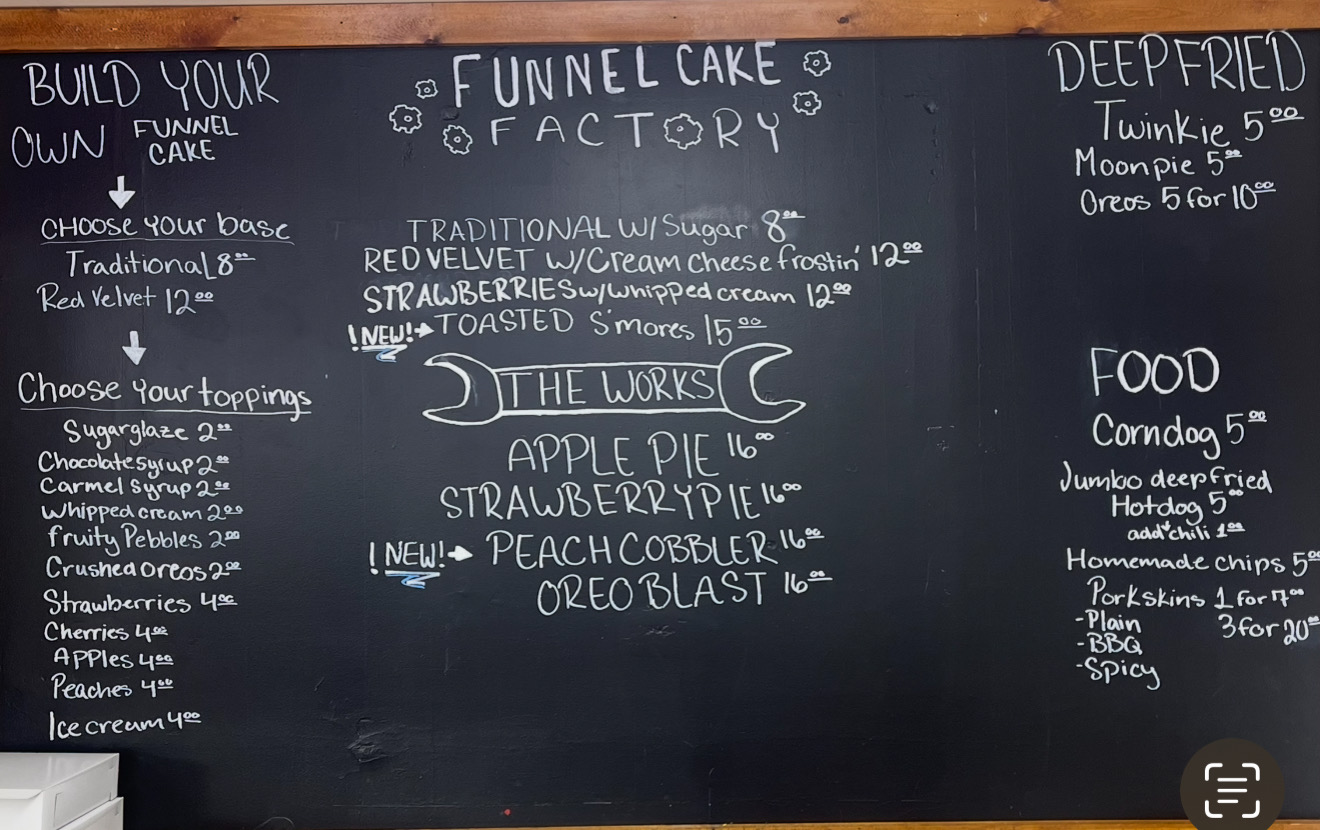 BUILD YOUR
OWN FUNNEL
CAKE
CHOOSE Your base
Traditional 8⁰⁰
Red Velvet 12⁰⁰
Choose Your toppings
Sugarglaze 2⁰⁰
Chocolate Syrup 2⁰⁰
Carmel Syrup 2⁰⁰
Whipped cream 2⁰⁰
fruity Pebbles 2⁰⁰
Crushed Oreos 2⁰⁰
Strawberries 4⁰⁰
Cherries 4⁰⁰
APPles 4⁰⁰
Peaches 4⁰⁰
Ice cream 4⁰⁰
FUNNEL CAKE
FACTORY
TRADITIONAL W/Sugar 8⁰⁰
RED VELVET W/Cream Cheese frostin' 12⁰⁰
STRAWBERRIES w/Whipped cream 12⁰⁰
!NEW! TOASTED S'mores 15⁰⁰
THE WORKS
APPLE PIE 16⁰⁰
STRAWBERRY PIE 16⁰⁰
!NEW! PEACH COBBLER 16⁰⁰
OREO BLAST 16⁰⁰
DEEP FRIED
Twinkie 5⁰⁰
Moonpie 5⁰⁰
Oreos 5 for 10⁰⁰
FOOD
Corndog 5⁰⁰
Jumbo deep fried
Hotdog 5⁰⁰
add chili 1⁰⁰
Homemade chips 5⁰⁰
Porkskins 1 for 7⁰⁰
-Plain 3 for 20⁰⁰
-BBQ
-Spicy